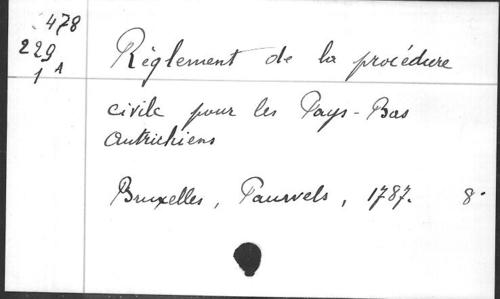 478
229
1 A
Règlement de la procédure
civile pour les Pays-Bas
Autrichiens
Bruxelles, Pauwels, 1787. 8°